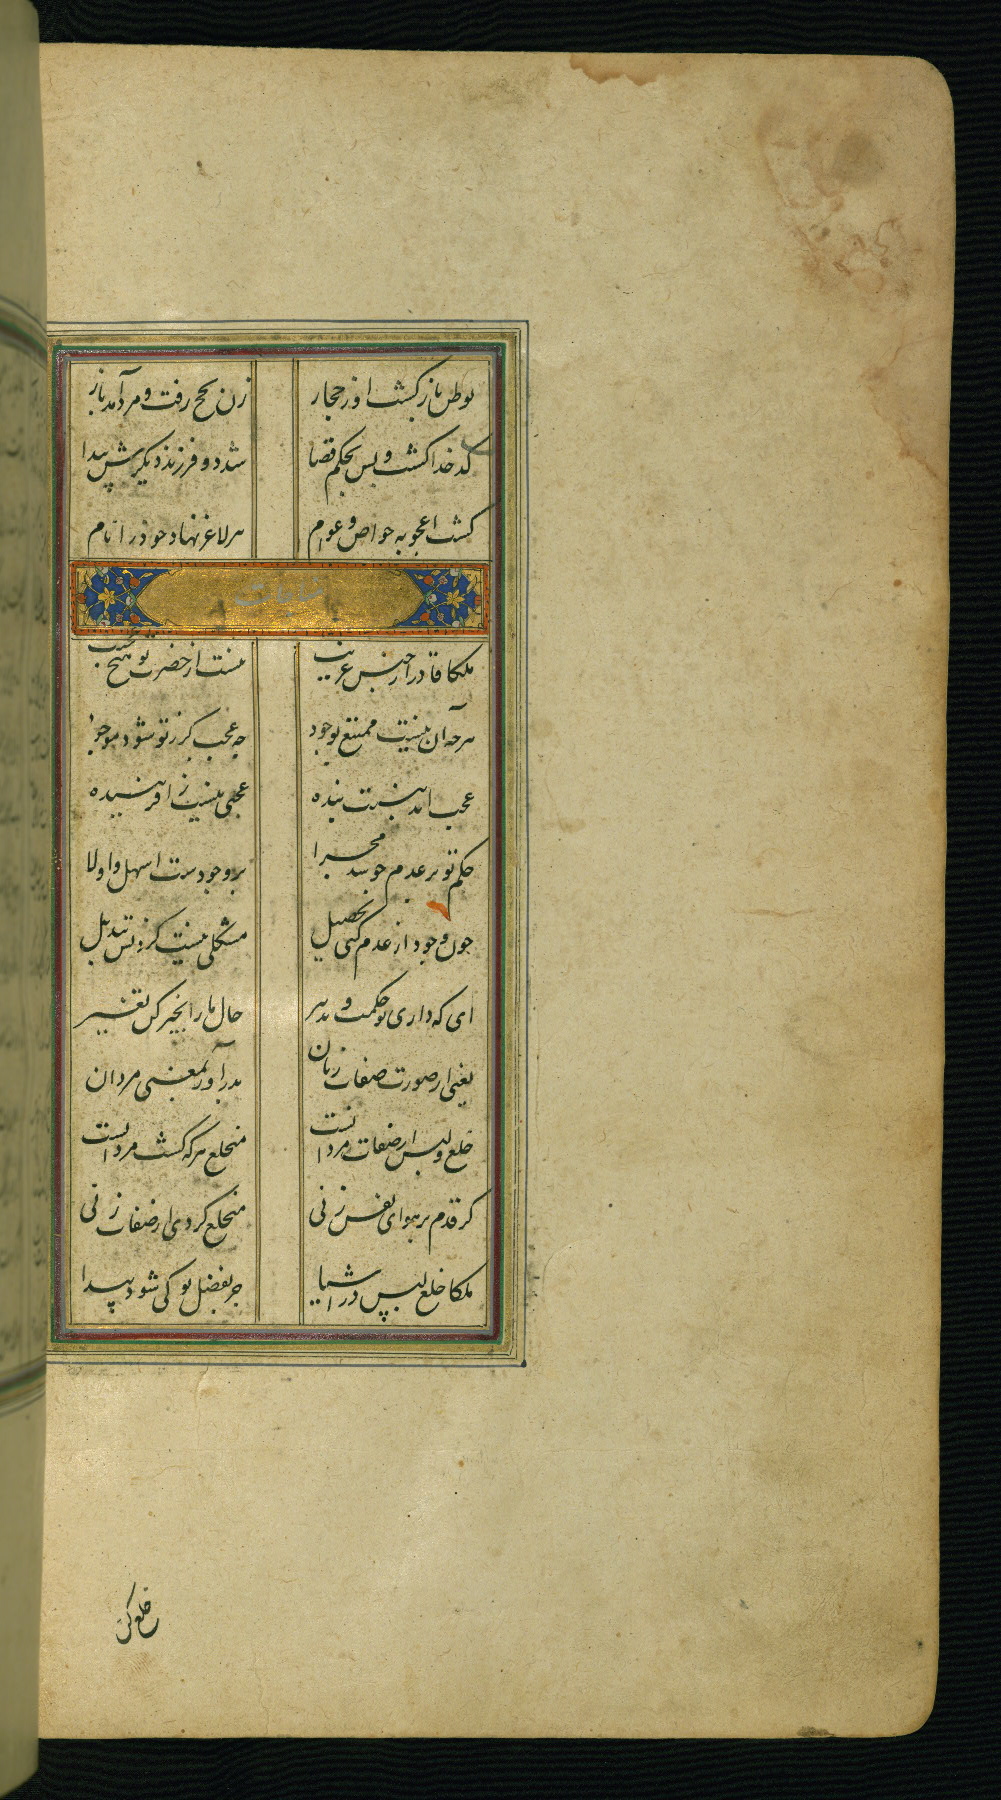 بوطن باز کشت او ز حجاز زن بحج رفت و مرد آمد باز
کدخدا کشت و پس بحکم قضا شد دو فرزند دیکرش پیدا
کشت اعجوبه خواص و عوام هر لاغر نهاد خود را نام
مناجات
ملکا قادرا ز جنس غریب نیست از حضرت تو هیچ عجیب
هرچه آن نیست ممتنع بوجود چه عجب کر ز تو شود موجود
عجب آمد به نسبت بنده عجبی نیست ز آفریننده
حکم تو بر عدم چو شد مجرا بر وجودست اسهل و اولا
چون وجود از عدم کنی تحصیل مشکلی نیست کردنش تبدیل
ای که داری تو حکمت و تدبیر حال ما را بخیر کن تغییر
یعنی از صورت صفات زنان بدر آور بمعنی مردان
خلع و لبس از صفات مردانست منخلع هر که کشت مرد آنست
کر قدم بر هوای نفس زنی منخلع کردی از صفات زنی
ملکا خلع لبس در اشیا جز بفضل تو کی شود پیدا
خلع کن